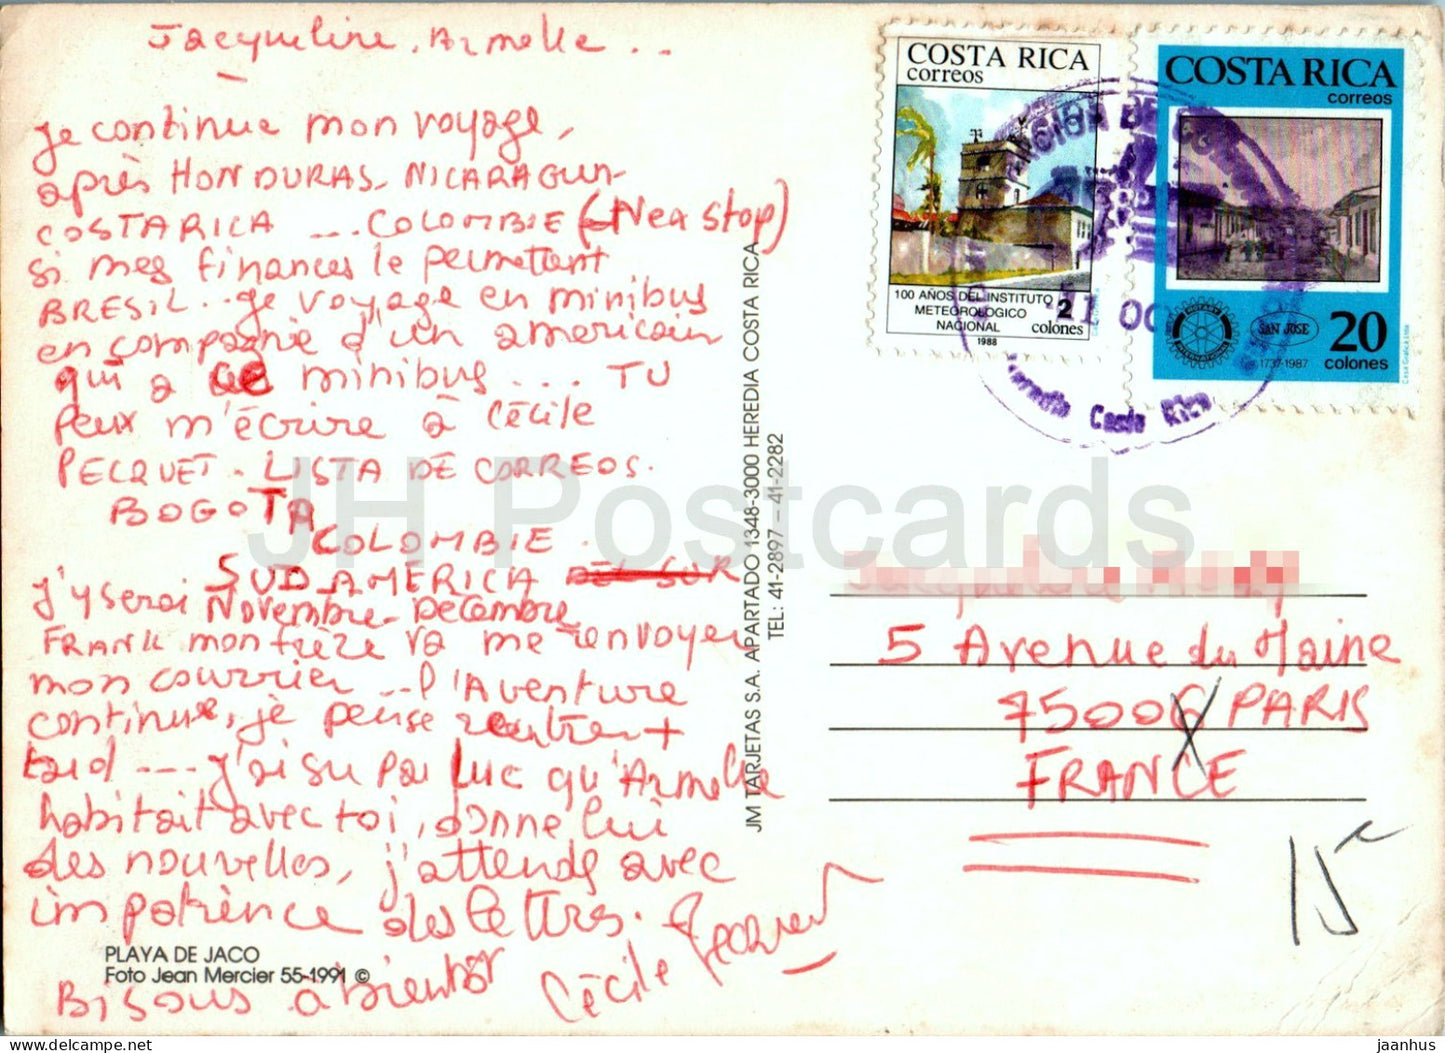 Jacqueline, Armelle...
Je continue mon voyage,
après HONDURAS - NICARAGUA
COSTA RICA ... COLOMBIE (Nex stop)
si mes finances le permettent
BRESIL.. Je voyage en minibus
en compagnie d'un americain
qui a ce minibus .... TU
Peux m'écrire à Cécile
PECQUET - LISTA DE CORREOS.
BOGOTA
COLOMBIE.
SUD AMÉRICA DEL SUR
J'y serai Novembre - Decembre
FRANK mon frère va me renvoyer
mon courrier .. l'Aventure
continue, je pense rentrer +
tard .... j'ai su par Luc qu'Armelle
habitait avec toi, donne lui
des nouvelles, j'attends avec
impatience des lettres.
Bisous à bientôt Cécile Pecquet
PLAYA DE JACO
Foto Jean Mercier 55-1991 ©
JM TARJETAS S.A. APARTADO 1348-3000 HEREDIA COSTA RICA
TEL: 41-2897 – 41-2282
COSTA RICA
correos
100 AÑOS DEL INSTITUTO
METEOROLOGICO
NACIONAL
2
colones
1988
COSTA RICA
correos
ROTARY
INTERNATIONAL
SAN JOSE
1737-1987
20
colones
Casa Grafica Ltda
11 OC
Heredia Costa Rica
5 Avenue du Maine
75006 PARIS
FRANCE
15€
JH Postcards
jaanhus | delcampe.net